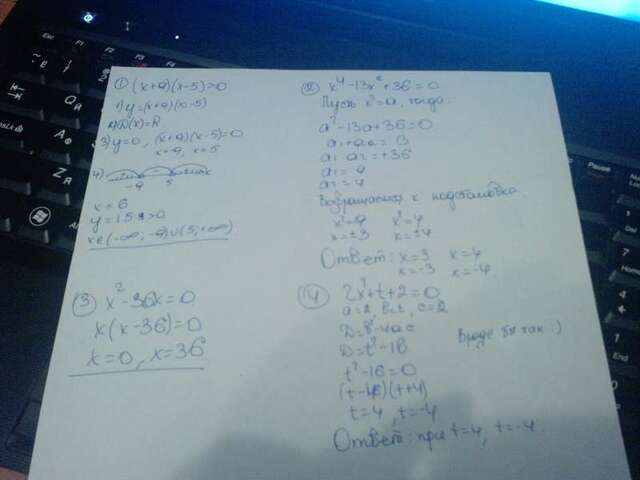 ① (x+9)(x-5)>0
1) y=(x+9)(x-5)
2) D(x)=R
3) y=0, (x+9)(x-5)=0
x=-9, x=5
4)
-9 5
x=6
y=15>0
x∈(-∞;-9)∪(5;+∞)
③ x²-36x=0
x(x-36)=0
x=0, x=36
② x⁴-13x²+36=0
Пусть x²=a, тогда
a²-13a+36=0
a₁+a₂=13
a₁·a₂=+36
a₁=9
a₂=4
Возвращаемся к подстановке
x²=9 x²=4
x=±3 x=±4
Ответ: x=3 x=4
x=-3 x=-4
④ 2x²+tx+2=0
D=b²-4ac
D=t²-16
t²-16=0
t=4 t=-4
Вроде бы так :)
Ответ: при t=4, t=-4.